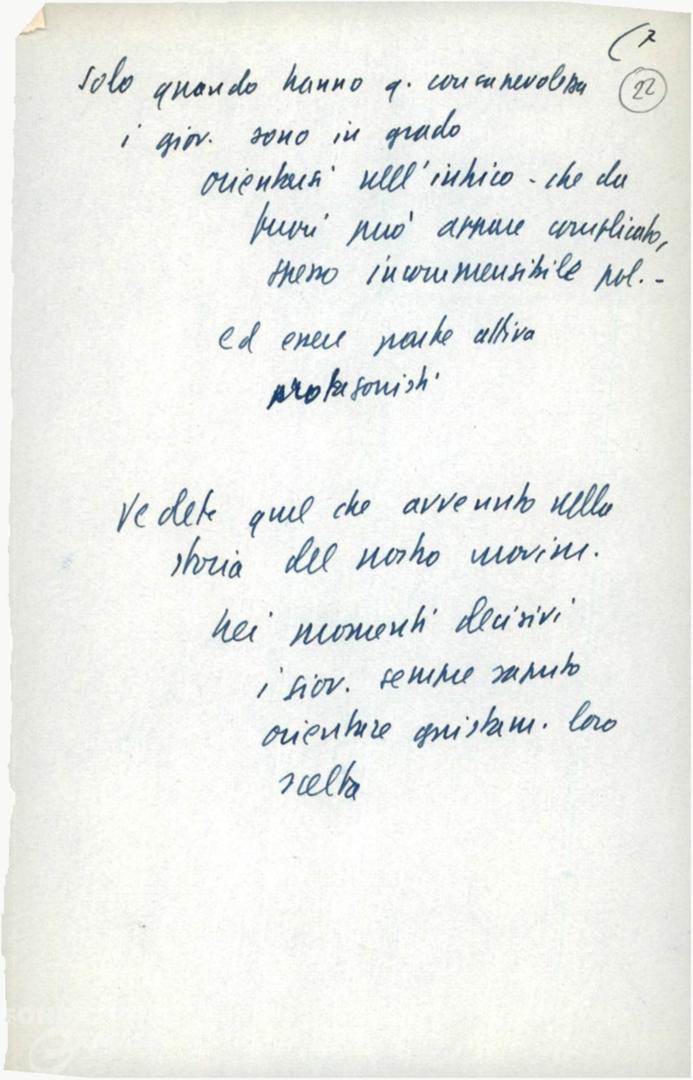 (7
22
Solo quando hanno q. consapevolezza
i giov. sono in grado
orientarsi nell'intrico - che da
fuori può apparire complicato,
spesso incommensibile pol. -
ed essere parte attiva
protagonisti
Vedete quel che avvenuto nella
storia del nostro movim.
Nei momenti decisivi
i giov. sempre saputo
orientare giustam. loro
scelta